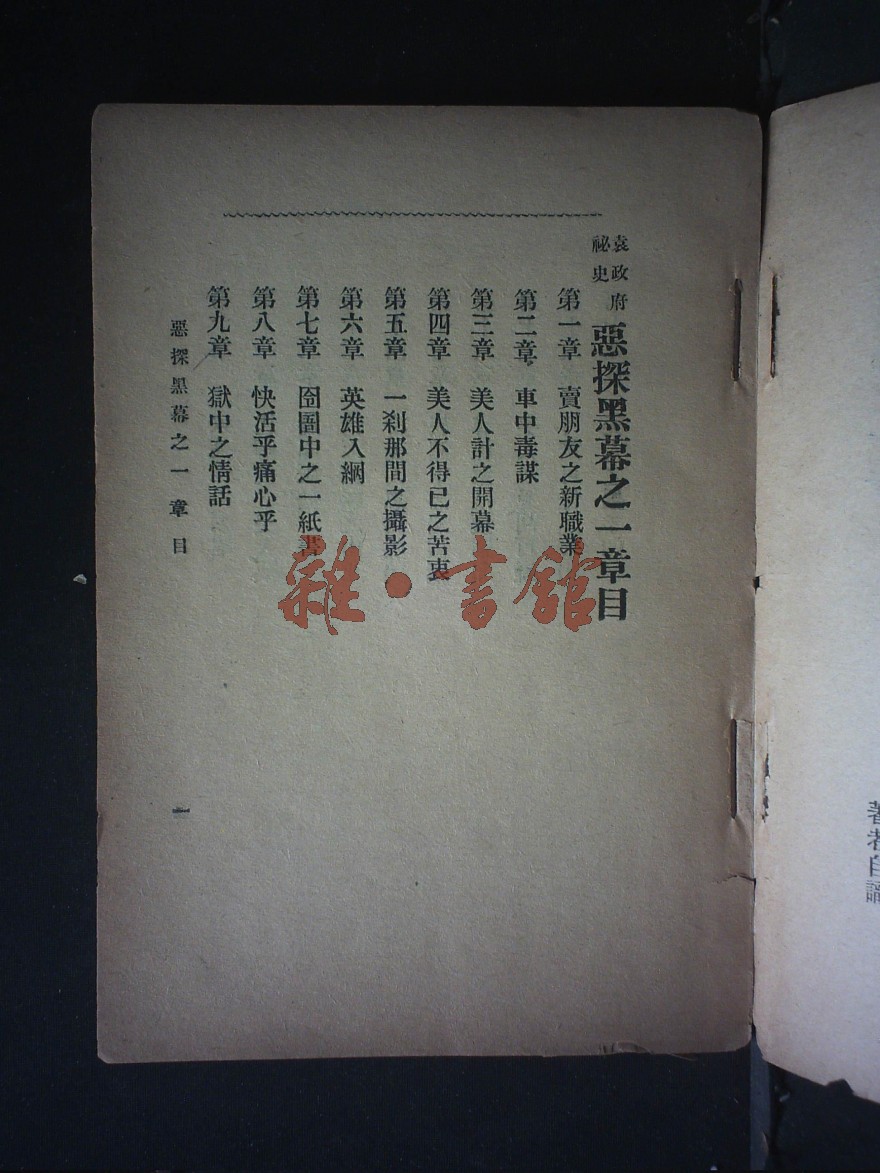 袁政府
祕史
惡探黑幕之一章目
第一章 賣朋友之新職業
第二章 車中毒謀
第三章 美人計之開幕
第四章 美人不得已之苦衷
第五章 一剎那間之攝影
第六章 英雄入網
第七章 囹圄中之一紙書
第八章 快活乎痛心乎
第九章 獄中之情話
惡探黑幕之一 章目
一
雜·書館
著者自識